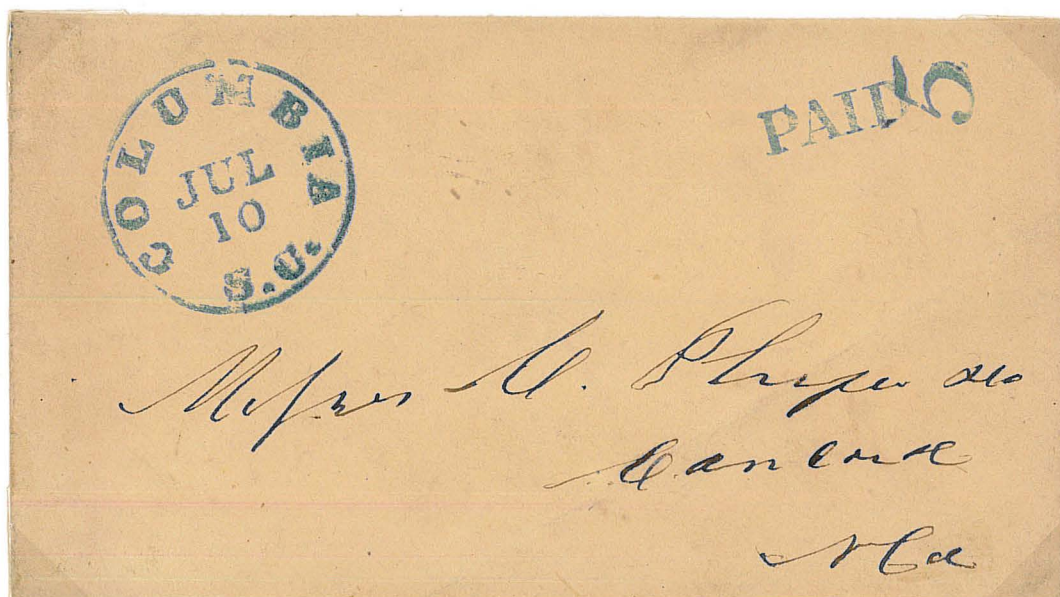 COLUMBIA S.C.
JUL
10
PAID 5
Messrs C. Phifer &Co
Concord
N Ca